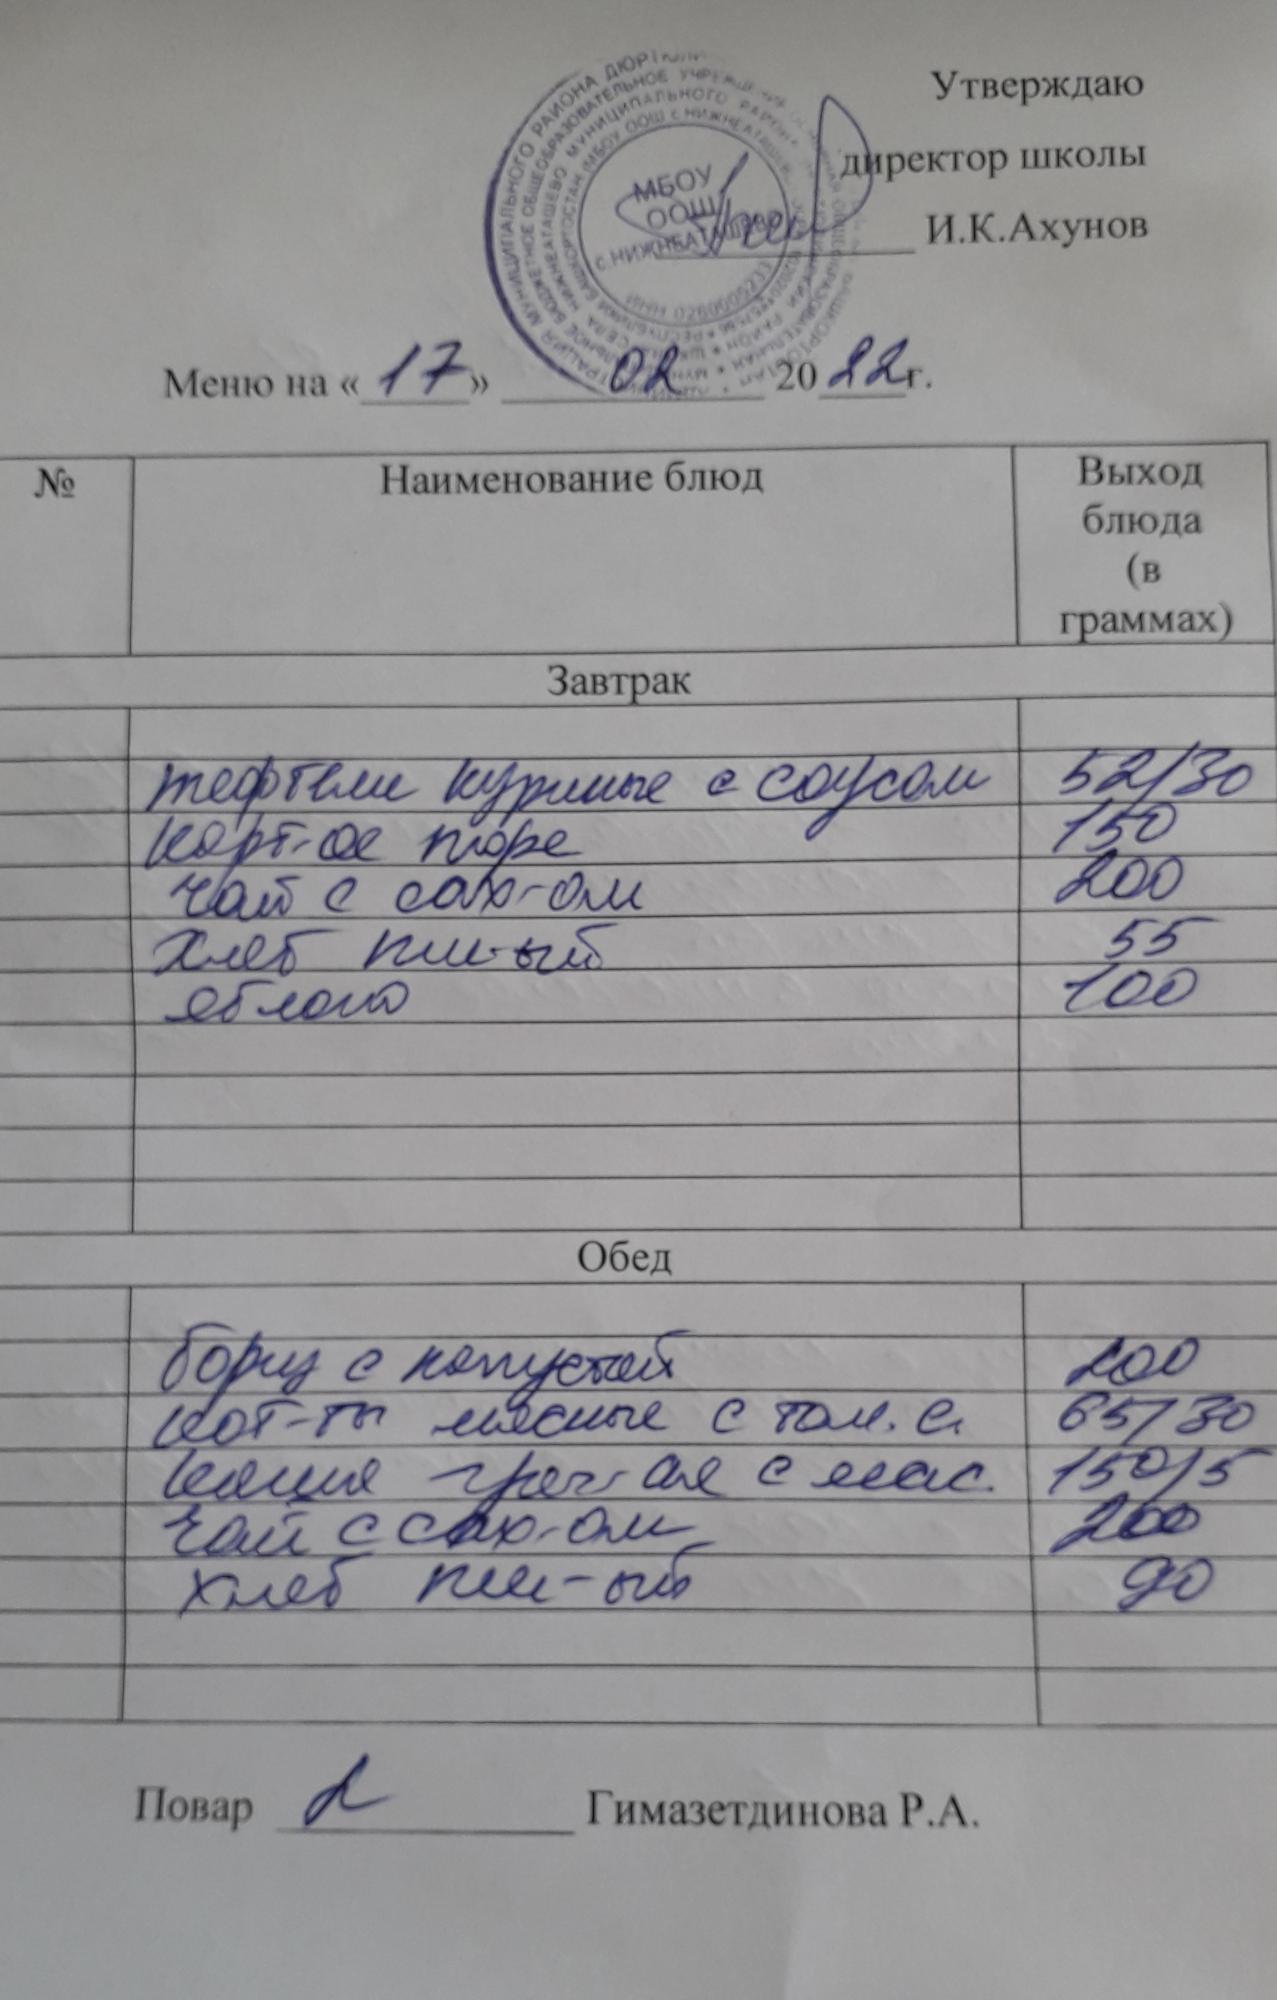 Утверждаю
директор школы
И.К.Ахунов
МБОУ
ООШ
с.НИЖНЕАТАШЕВО
ИНН 0260005233
Меню на « 17 » 02 20 22 г.
№ Наименование блюд Выход
блюда
(в
граммах)
Завтрак
тефтели куриные с соусом 52/30
карт-ое пюре 150
чай с сах-ом 200
Хлеб пш-ый 55
яблоко 100
Обед
борщ с капустой 200
кот-ты мясные с том. с. 65/30
каша греч-ая с мас. 150/5
чай с сах-ом 200
хлеб пш-ый 90
Повар Гимазетдинова Р.А.